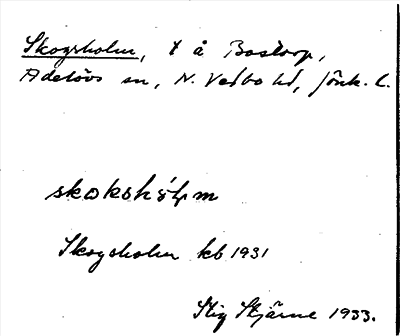 Skogsholm, t å Bostorp,
Adelövs sn, N. Vedbo hd, Jönk. l.
skokshólm
Skogsholm kb 1931
Stig Stjärne 1933.